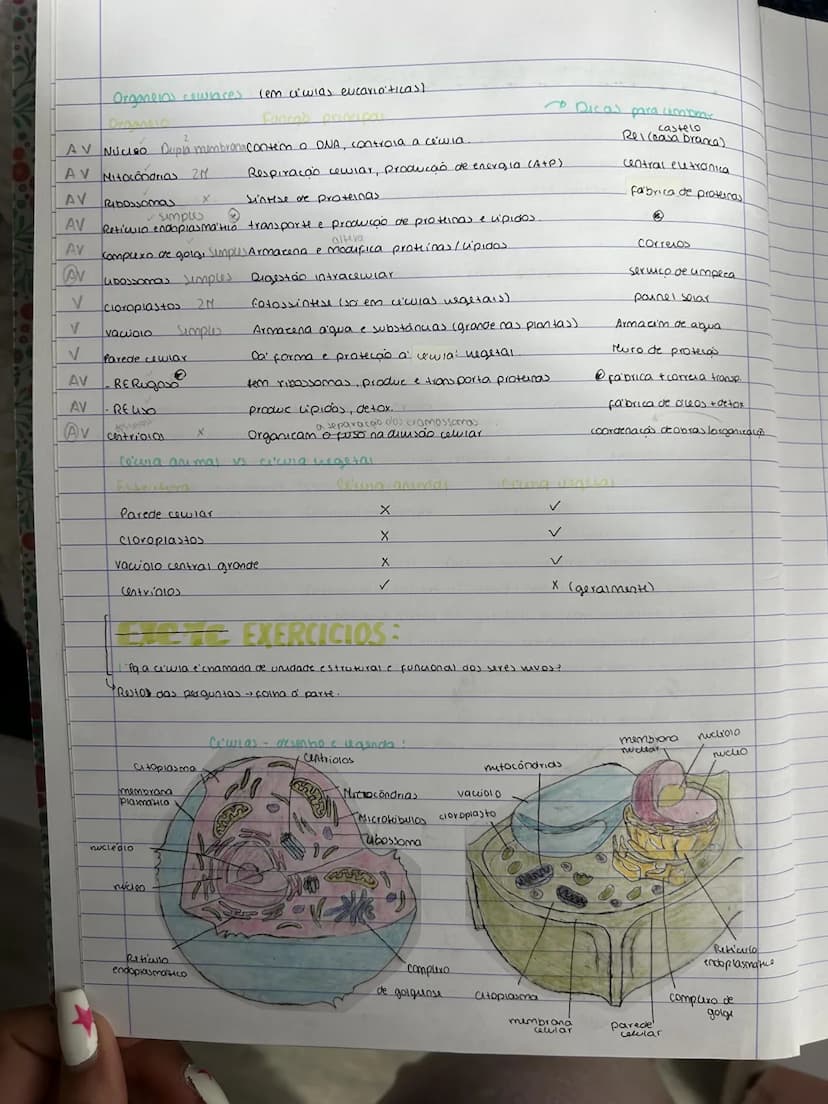 Organelos celulares (em células eucarióticas)
Organelo Função principal → Dicas para lembrar
AV Núcleo Dupla membrana 2 contém o DNA, controla a célula. Rei (casa branca) castelo
AV Mitocôndrias 2M Respiração celular, produção de energia (ATP) central eletrónica
AV Ribossomas x síntese de proteínas fábrica de proteínas
AV Retículo endoplasmático simples transporte e produção de proteínas e lípidos.
AV Complexo de golgi simples Armazena e modifica altera proteínas/lípidos correios
AV Lisossomas simples Digestão intracelular serviço de limpeza
V Cloroplastos 2M Fotossíntese (só em células vegetais) painel solar
V Vacúolo simples Armazena água e substâncias (grande nas plantas) Armazém de água
V Parede celular Dá forma e proteção à célula vegetal Muro de proteção
AV - RERugoso tem ribossomas, produz e transporta proteínas fábrica + correia transp.
AV - RELiso produz lípidos, detox. fábrica de óleos + detox
AV centríolos x Organizam o fuso na divisão celular a separação dos cromossomas coordenação de obras/organização
Célula animal vs célula vegetal
Estrutura Célula animal Célula vegetal
Parede celular X ✓
Cloroplastos X ✓
Vacúolo central grande X ✓
Centríolos ✓ X (geralmente)
EXERCICIOS:
1. Pq a célula é chamada de unidade estrutural e funcional dos seres vivos?
↳ Restos das perguntas → folha à parte.
Células - desenho e legenda:
citoplasma
centríolos
membrana plasmática
Mitocôndrias
Microtúbulos
Lisossoma
nucléolo
núcleo
Retículo endoplasmático
complexo de golguense
mitocôndrias
membrana nuclear
nucléolo
núcleo
vacúolo
cloroplasto
Retículo endoplasmático
citoplasma
complexo de golgi
membrana celular
parede celular